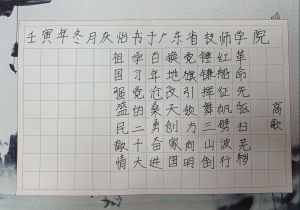 壬寅年冬月庆怡书于广东省技师学院
高歌
革命先驱扫芜
红船征帆劈波行
锤镰挥舞三山倒
党旗引领向明
换地改天创家国
百年沧桑勇奋进
学习党的二十大
祖国强盛民情